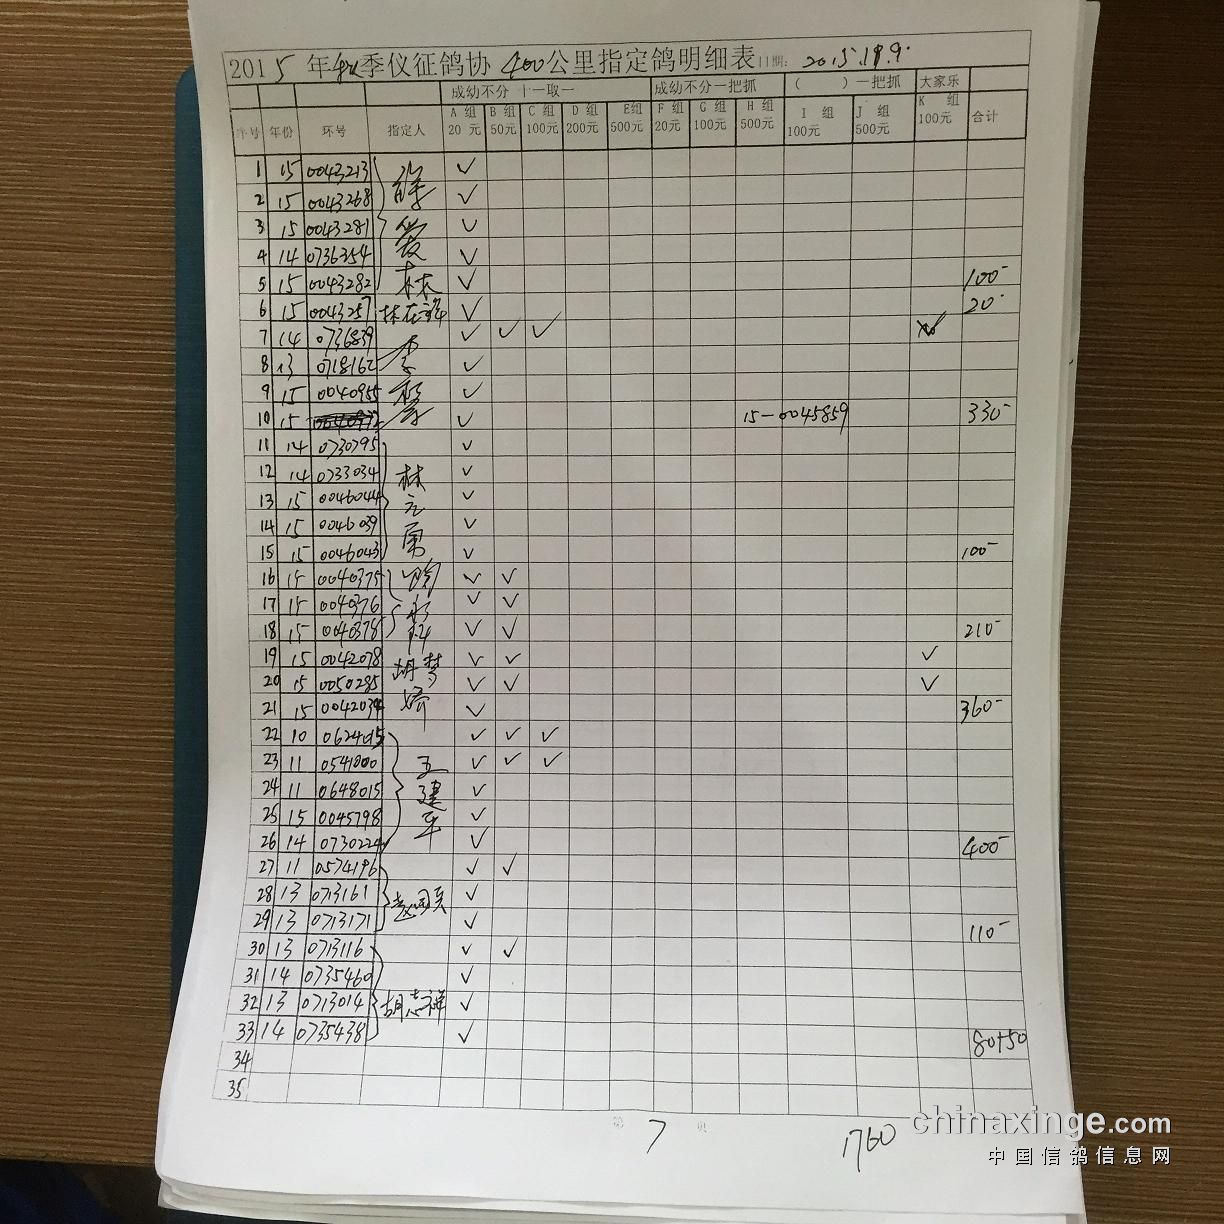 2015年秋季仪征鸽协400公里指定鸽明细表日期:2015.11.9.
成幼不分 十一取一 成幼不分一把抓 ( )一把抓 大家乐
序号 年份 环号 指定人 A 组 20 元 B 组 50元 C 组 100元 D 组 200元 E组 500元 F 组 20元 G 组 100元 H 组 500元 I 组 100元 J 组 500元 K 组 100元 合计
1 15 0043213 薛爱林 ✓
2 15 0043268 ✓
3 15 0043281 ✓
4 14 0736354 ✓
5 15 0043282 ✓ 100-
6 15 0043257 ✓ 20-
7 14 0736839 ✓ ✓ ✓
8 13 0718162 李 ✓
9 15 0040955 ✓
10 15 ✓ 15-0045859 330-
11 14 0730795 ✓
12 14 0733034 林元勇 ✓
13 15 0046044 ✓
14 15 0046039 ✓
15 15 0046043 ✓ 100-
16 15 0040375 ✓ ✓
17 15 0040376 ✓ ✓
18 15 0040378 ✓ ✓ 210-
19 15 0042078 胡梦娇 ✓ ✓ ✓
20 15 0050285 ✓ ✓ ✓
21 15 0042034 ✓ 360-
22 10 0624015 ✓ ✓ ✓
23 11 0541000 王建平 ✓ ✓ ✓
24 11 0648015 ✓
25 15 0045798 ✓
26 14 0730224 ✓ 400-
27 11 0574196 ✓ ✓
28 13 0713161 ✓
29 13 0713171 ✓ 110-
30 13 0713116 ✓ ✓
31 14 0735460 ✓
32 13 0713014 胡志祥 ✓
33 14 0735438 ✓ 80+50
34
35
第 7 页 1760
chinaxinge.com
中国信鸽信息网